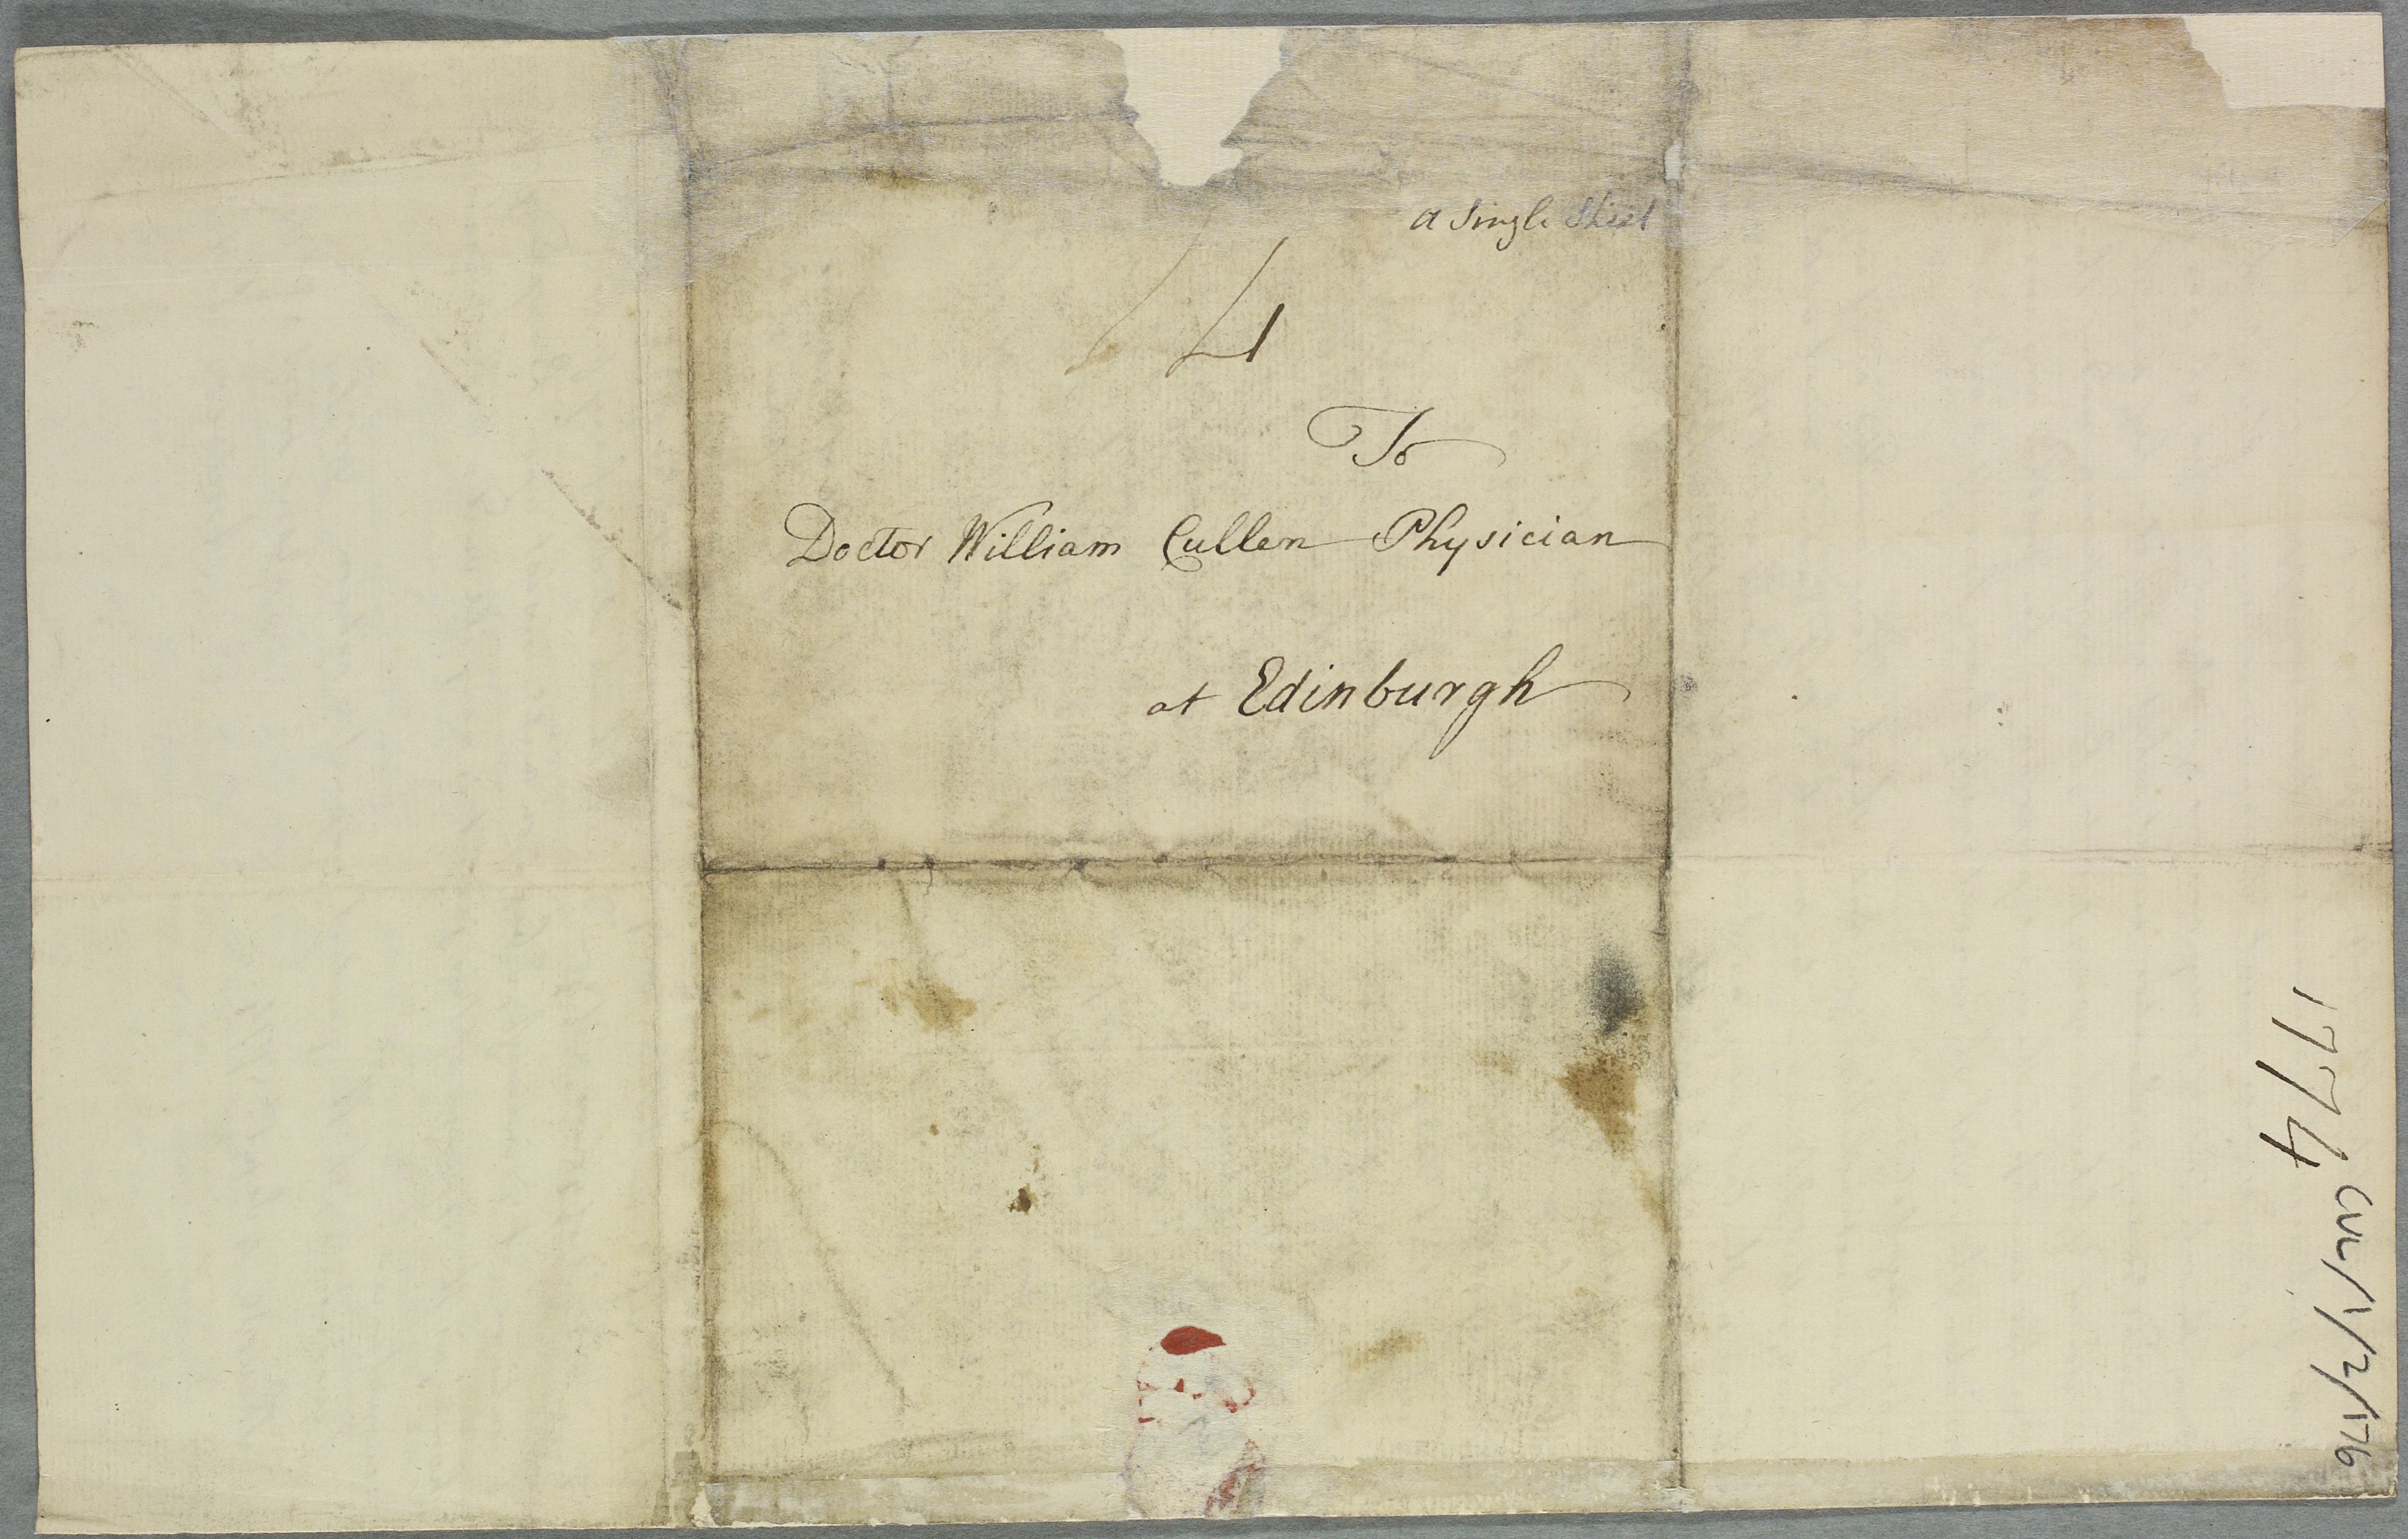 a single sheet
4
To
Doctor William Cullen Physician
at Edinburgh
1774
CUL/1/2/176